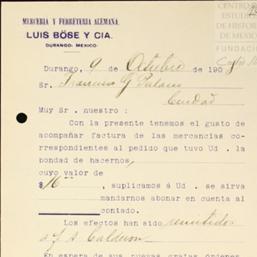 MERCERIA Y FERRETERIA ALEMANA.
LUIS BÖSE Y CIA.
DURANGO, MEXICO.
CENTRO
ESTUDI
DE HISTOR
DE MEXI
FUNDACIÓ
Durango, 9 de Octubre de 190
Sr. Francisco G.
Ciudad
Muy Sr. nuestro:
Con la presente tenemos el gusto de
acompañar factura de las mercancias co-
rrespondientes al pedido que tuvo Ud. la
bondad de hacernos,
cuyo valor de
$ 16 , suplicamos á Ud. se sirva
mandarnos abonar en cuenta al
contado.
Los efectos han sido remitido
a J. A. Calderon
En espera de sus nuevas gratas órdenes